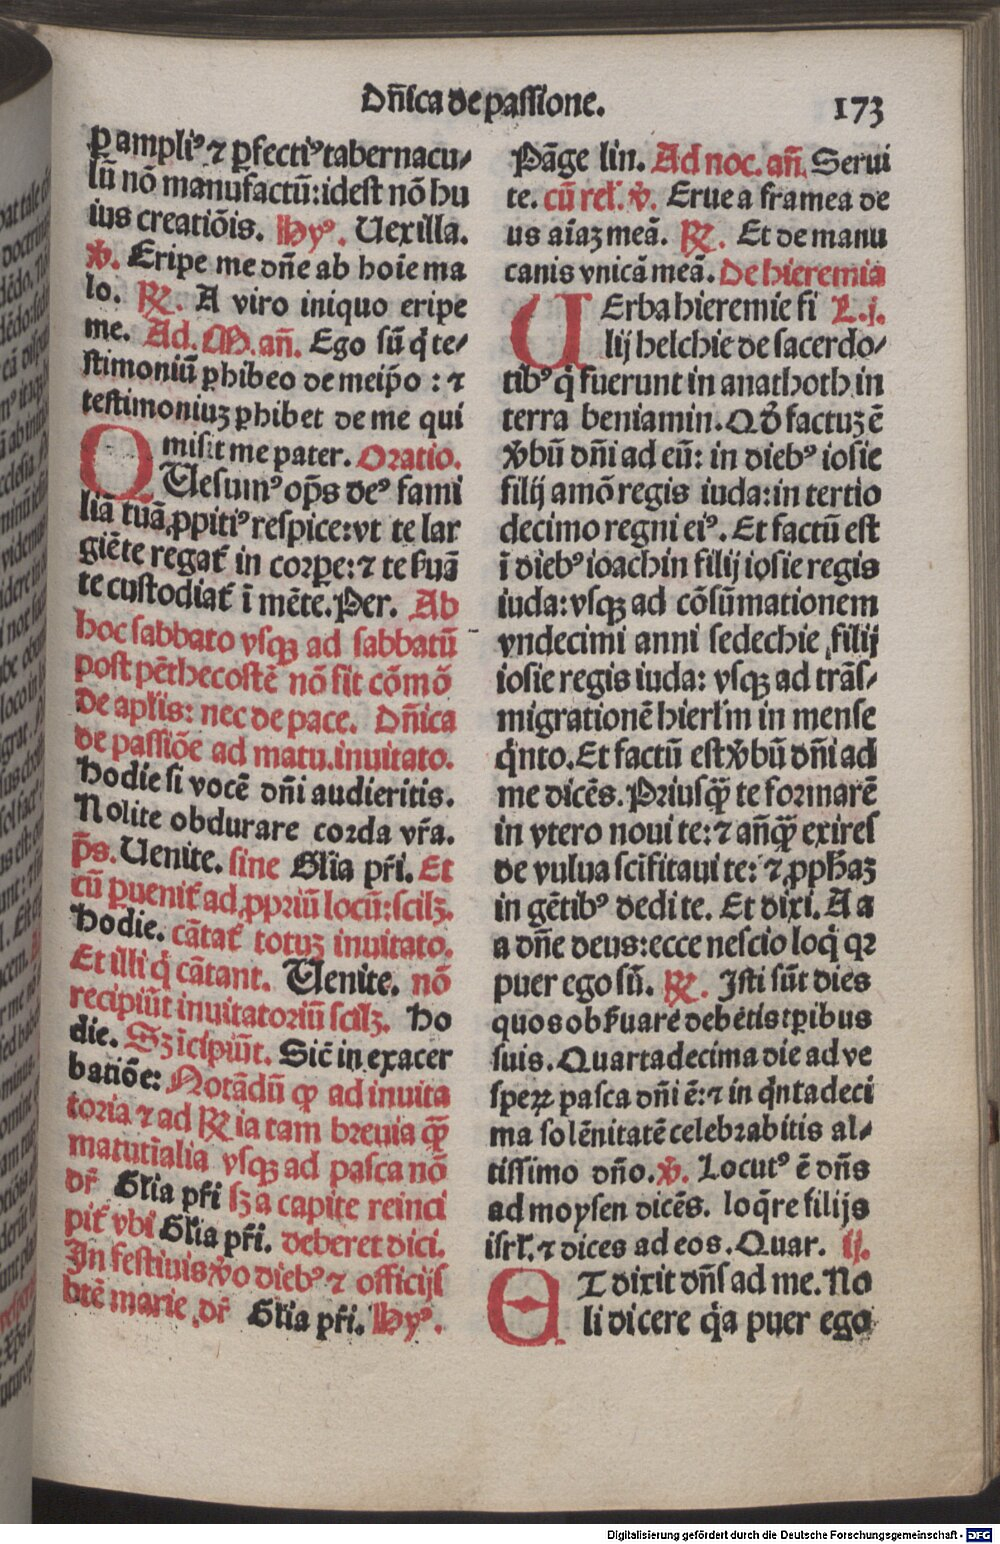 Dñica de passione.
173
ꝑ ampliꝰ ⁊ ꝑfectiꝰ tabernacu⸗
lū nō manufactū: idest nō hu
ius creatiōis. Hyꝰ. Uexilla.
℣. Eripe me dñe ab hoīe ma
lo. ℟. A viro iniquo eripe
me. Ad. M. añ. Ego sū q̇ te⸗
stimoniū ꝑhibeo de meip̄o : ⁊
testimoniuꝫ ꝑhibet de me qui
misit me pater. Oratio.
QUesumꝰ op̄s deꝰ fami
liā tuā ꝓpitiꝰ respice: vt te lar
giēte regat᷑ in corpe: ⁊ te ẜuā
te custodiat᷑ ī mēte. Per. Ab
hoc sabbato vsqꝫ ad sabbatū
post pēthecostē nō sit cōmō
de aplis: nec de pace. Dñica
de passiōe ad matu. inuitato.
Hodie si vocē dñi audieritis.
Nolite obdurare corda vr̄a.
p̄s. Uenite. sine Gl'ia pr̄i. Et
cū ꝑuenit᷑ ad ꝓpriū locū: scilꝫ.
Hodie. cātat᷑ totuꝫ inuitato.
Et illi q̇ cātant. Uenite. nō
recipiūt inuitatoriū scilꝫ. Ho
die. Sꝫ īcipiūt. Sic̄ in exacer
batiōe: Notādū ꝙ ad inuita
toria ⁊ ad ℟ ia tam breuia qꝫ̄
matutīalia vsqꝫ ad pasca nō
dr̄ Gl'ia pr̄i sꝫ a capite reinci
pit᷑ vbi Gl'ia pr̄i. deberet dici.
In festiuis v̊o diebꝰ ⁊ officijs
btē marie dr̄ Gl'ia pr̄i. Hyꝰ.
Pāge lin. Ad noc. añ. Serui
te. cū rel'. ℣. Erue a framea de
us aīaꝫ meā. ℟. Et de manu
canis vnicā meā. De hieremia
UErba hieremie fi L. j.
lij helchie de sacerdo⸗
tibꝰ q̇ fuerunt in anathoth in
terra beniamin. Qd̓ factuꝫ ē
v̊bū dñi ad eū: in diebꝰ iosie
filij amō regis iuda: in tertio
decimo regni eiꝰ. Et factū est
ī diebꝰ ioachin filij iosie regis
iuda: vsqꝫ ad cōsūmationem
vndecimi anni sedechie filij
iosie regis iuda: vsqꝫ ad trās⸗
migrationē hierl'm in mense
q̇nto. Et factū est v̊bū dñi ad
me dicēs. Priusqꝫ̄ te formarē
in vtero noui te: ⁊ añqꝫ̄ exires
de vulua scificaui te: ⁊ ꝓphaꝫ
in gētibꝰ dedi te. Et dixi. A a
a dñe deus: ecce nescio loq̇ qꝛ
puer ego sū. ℟. Isti sūt dies
quos obẜuare debētis tꝑibus
suis. Quartadecima die ad ve
speꝝ pasca dñi ē: ⁊ in q̇ntadeci
ma solēnitatē celebrabitis al⸗
tissimo dño. ℣. Locutꝰ ē dñs
ad moysen dicēs. loq̄re filijs
isrl'. ⁊ dices ad eos. Quar. ij.
ET dixit dñs ad me. No
li dicere q̇a puer ego
Digitalisierung gefördert durch die Deutsche Forschungsgemeinschaft - DFG